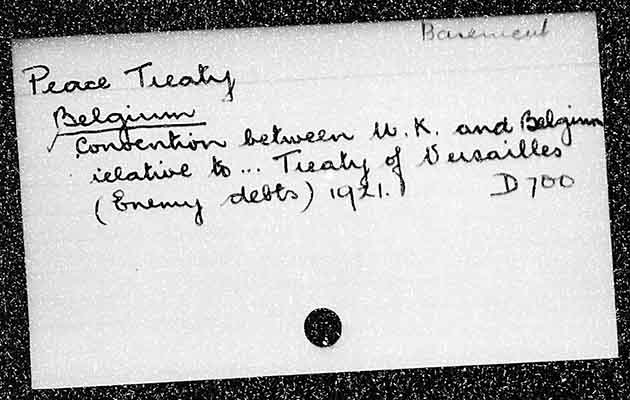 Basement
Peace Treaty
Belgium
Convention between U.K. and Belgium
relative to ... Treaty of Versailles
(Enemy debts) 1921.
D 700